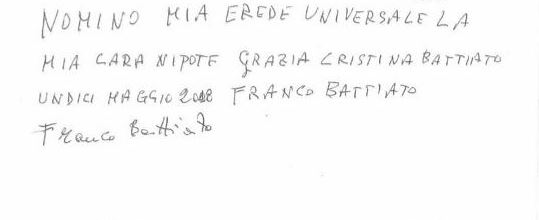 NOMINO MIA EREDE UNIVERSALE LA
MIA CARA NIPOTE GRAZIA CRISTINA BATTIATO
UNDICI MAGGIO 2018 FRANCO BATTIATO
Franco Battiato